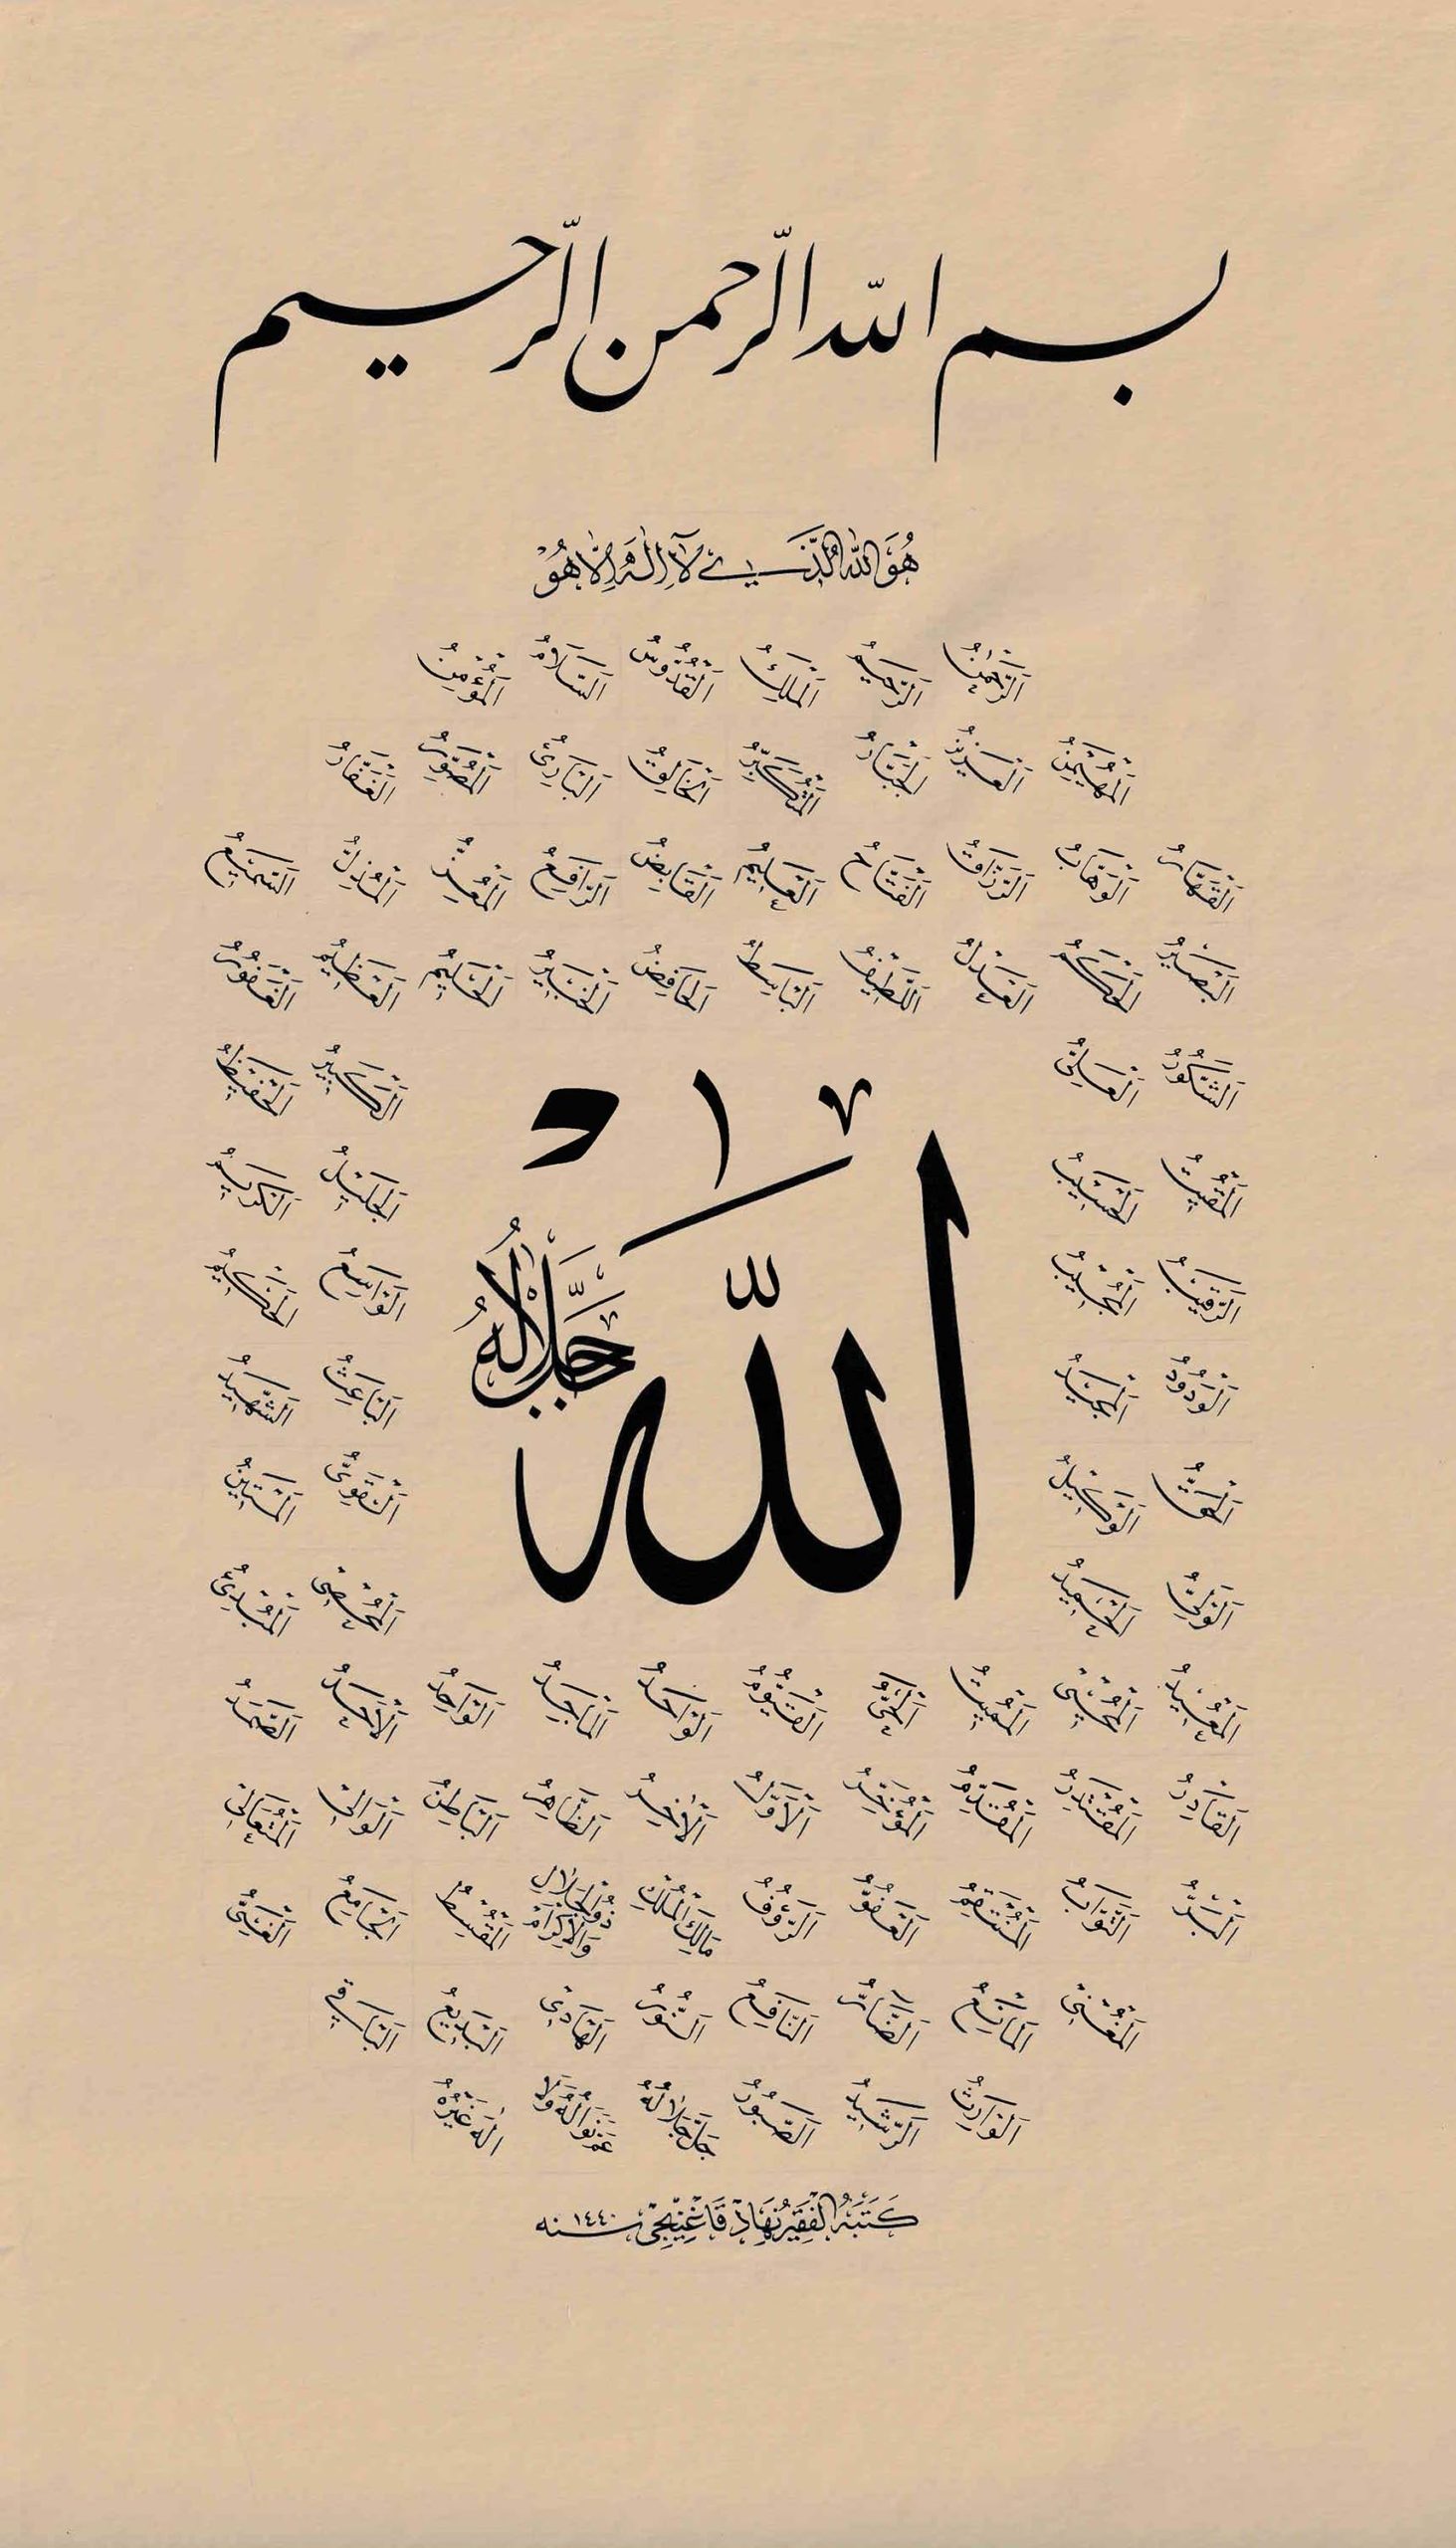 بسم الله الرحمن الرحيم
هُوَ اللهُ الَّذِي لَا اِلٰهَ اِلَّا هُوَ
اَلرَّحْمٰنُ اَلرَّحِيمُ اَلْمَلِكُ اَلْقُدُّوسُ اَلسَّلَامُ اَلْمُؤْمِنُ
اَلْمُهَيْمِنُ اَلْعَزِيزُ اَلْجَبَّارُ اَلْمُتَكَبِّرُ اَلْخَالِقُ اَلْبَارِئُ اَلْمُصَوِّرُ اَلْغَفَّارُ
اَلْقَهَّارُ اَلْوَهَّابُ اَلرَّزَّاقُ اَلْفَتَّاحُ اَلْعَلِيمُ اَلْقَابِضُ اَلرَّافِعُ اَلْمُعِزُّ اَلْمُذِلُّ اَلسَّمِيعُ
اَلْبَصِيرُ اَلْحَكَمُ اَلْعَدْلُ اَللَّطِيفُ اَلْبَاسِطُ اَلْخَافِضُ اَلْخَبِيرُ اَلْحَلِيمُ اَلْعَظِيمُ اَلْغَفُورُ
اَلشَّكُورُ اَلْعَلِيُّ اَلْكَبِيرُ اَلْحَفِيظُ
اَلْمُقِيتُ اَلْحَسِيبُ اَلْجَلِيلُ اَلْكَرِيمُ
اَلرَّقِيبُ اَلْمُجِيبُ اَلْوَاسِعُ اَلْحَكِيمُ
اَلْوَدُودُ اَلْمَجِيدُ اَلْبَاعِثُ اَلشَّهِيدُ
اَلْحَقُّ اَلْوَكِيلُ اَلْقَوِيُّ اَلْمَتِينُ
اَلْوَلِيُّ اَلْحَمِيدُ اَلْمُحْصِي اَلْمُبْدِئُ
الله
جَلَّ جَلَالُهُ
اَلْمُعِيدُ اَلْمُحْيِي اَلْمُمِيتُ اَلْحَيُّ اَلْقَيُّومُ اَلْوَاجِدُ اَلْمَاجِدُ اَلْوَاحِدُ اَلْاَحَدُ اَلصَّمَدُ
اَلْقَادِرُ اَلْمُقْتَدِرُ اَلْمُقَدِّمُ اَلْمُؤَخِّرُ اَلْاَوَّلُ اَلْاٰخِرُ اَلظَّاهِرُ اَلْبَاطِنُ اَلْوَالِي اَلْمُتَعَالِي
اَلْبَرُّ اَلتَّوَّابُ اَلْمُنْتَقِمُ اَلْعَفُوُّ اَلرَّؤُفُ مَالِكُ الْمُلْكِ ذُو الْجَلَالِ وَالْاِكْرَامِ اَلْمُقْسِطُ اَلْجَامِعُ اَلْغَنِيُّ
اَلْمُغْنِي اَلْمَانِعُ اَلضَّارُّ اَلنَّافِعُ اَلنُّورُ اَلْهَادِي اَلْبَدِيعُ اَلْبَاقِي
اَلْوَارِثُ اَلرَّشِيدُ اَلصَّبُورُ جَلَّ جَلَالُهُ عَمَّ نَوَالُهُ وَلَا اِلٰهَ غَيْرُهُ
كَتَبَهُ الْفَقِيرُ نِهَاد قَاغِنِيجِي سنه ١٤٤٠